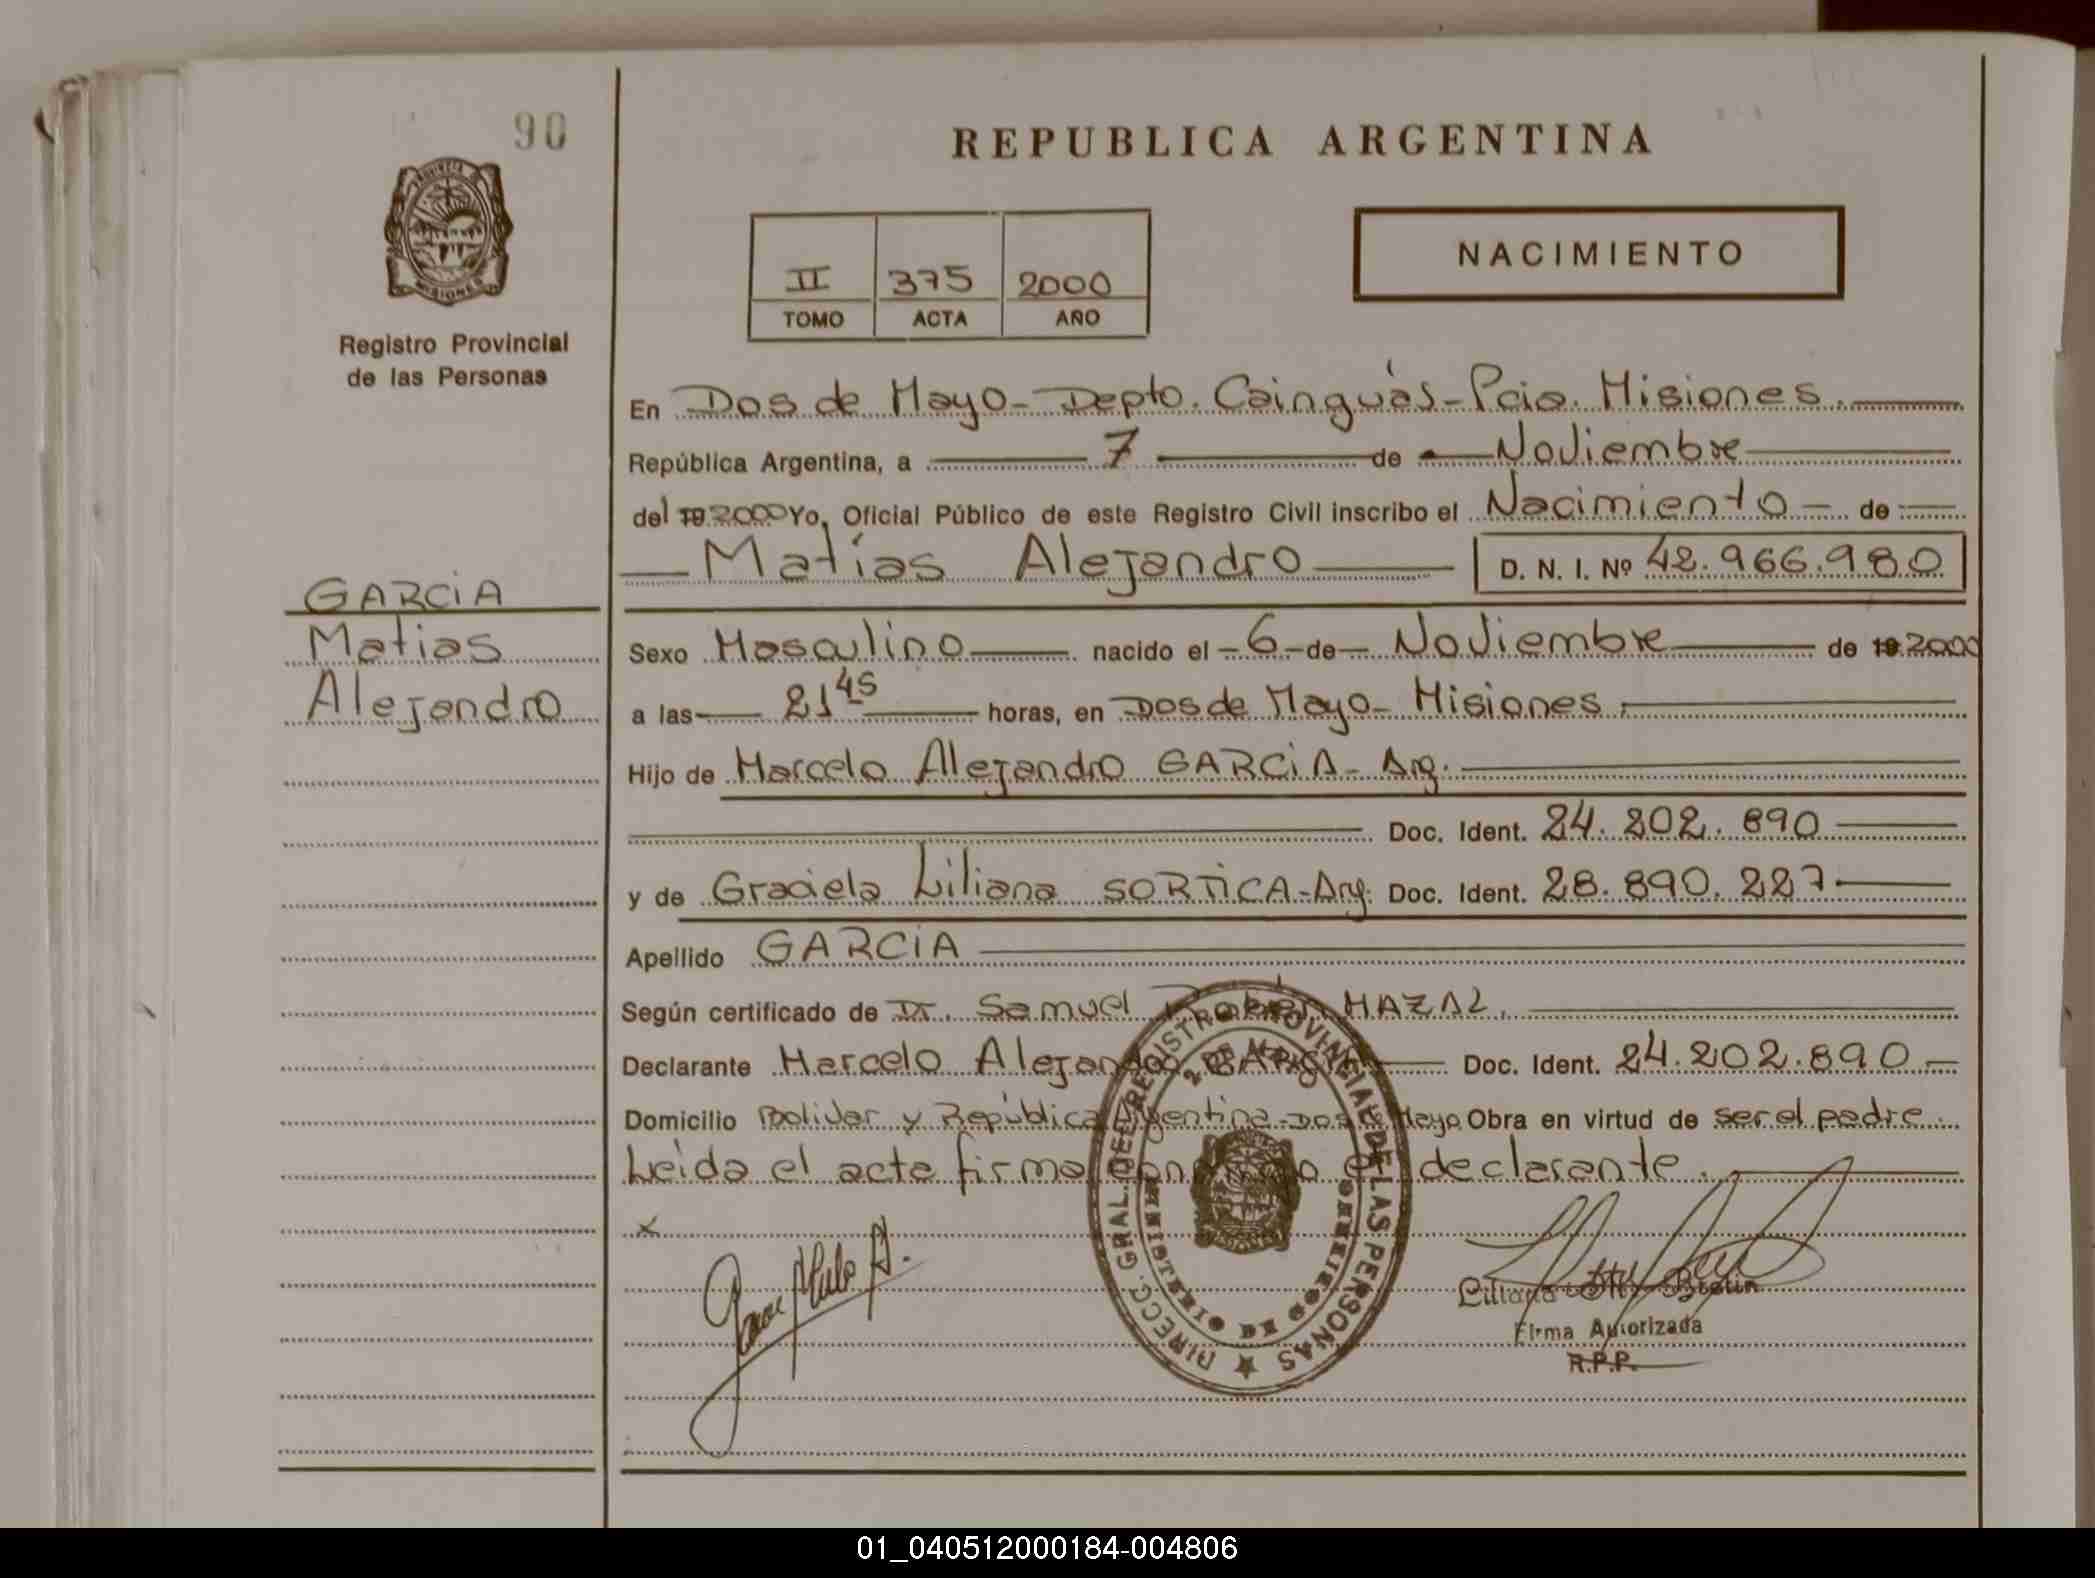 90
REPUBLICA ARGENTINA
PROVINCIA DE
MISIONES
Registro Provincial
de las Personas
II 375 2000
TOMO ACTA AÑO
NACIMIENTO
En Dos de Mayo - Depto. Cainguás - Pcia. Misiones.
República Argentina, a 7 de Noviembre
del 19 2000 Yo, Oficial Público de este Registro Civil inscribo el Nacimiento - de
Matías Alejandro D. N. I. Nº 42.966.980
GARCiA
Matias
Alejandro
Sexo Masculino nacido el - 6 - de - Noviembre de 19 2000
a las 21 45 horas, en Dos de Mayo - Misiones.
Hijo de Marcelo Alejandro GARCiA - Arg.
Doc. Ident. 24.202.890
y de Graciela Liliana SORTiCA - Arg. Doc. Ident. 28.890.227
Apellido GARCiA
Según certificado de Dr. Samuel MAZAL.
Declarante Marcelo Alejandro GARCiA Doc. Ident. 24.202.890 -
Domicilio Bolivar y República Argentina - Dos de Mayo Obra en virtud de ser el padre.
Leida el acta firma conmigo el declarante.
x
DIRECC. GRAL. DEL REGISTRO PROVINCIAL DE LAS PERSONAS
2 DE MAYO
Liliana Bretin
Firma Autorizada
R.P.P.
01_040512000184-004806